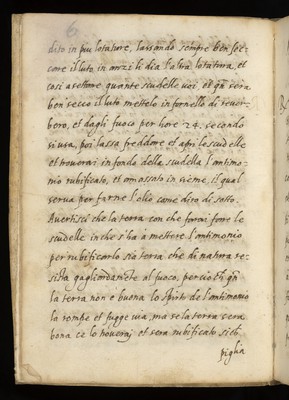 6
dito in piu lotature, lassando sempre ben sec=
care il luto in anzi li dia l'altra lotatura, et
cosi a settare quante scudelle uoi. et qñ sera
ben secco il luto mettelo in fornello di reuer=
bero, et dagli fuoco per hore 24. secondo
si usa, poi lassa freddare et apri le scudelle
et trouerai in fondo della scudella l'antimo=
nio rubificato, et amassato insieme, il qual
serua per farne l'olio come diro di sotto.
Auertisci che la terra con che farai fare le
scudelle in che s'ha a mettere l'antimonio
per rubificarlo sia terra che di natura re=
sista gagliardamẽte al fuoco, percio che qñ
la terra non è buona lo spirto de l'antimonio
la rompe et fugge uia, ma se la terra sera
bona ce lo trouerai et sera rubificato
piglia